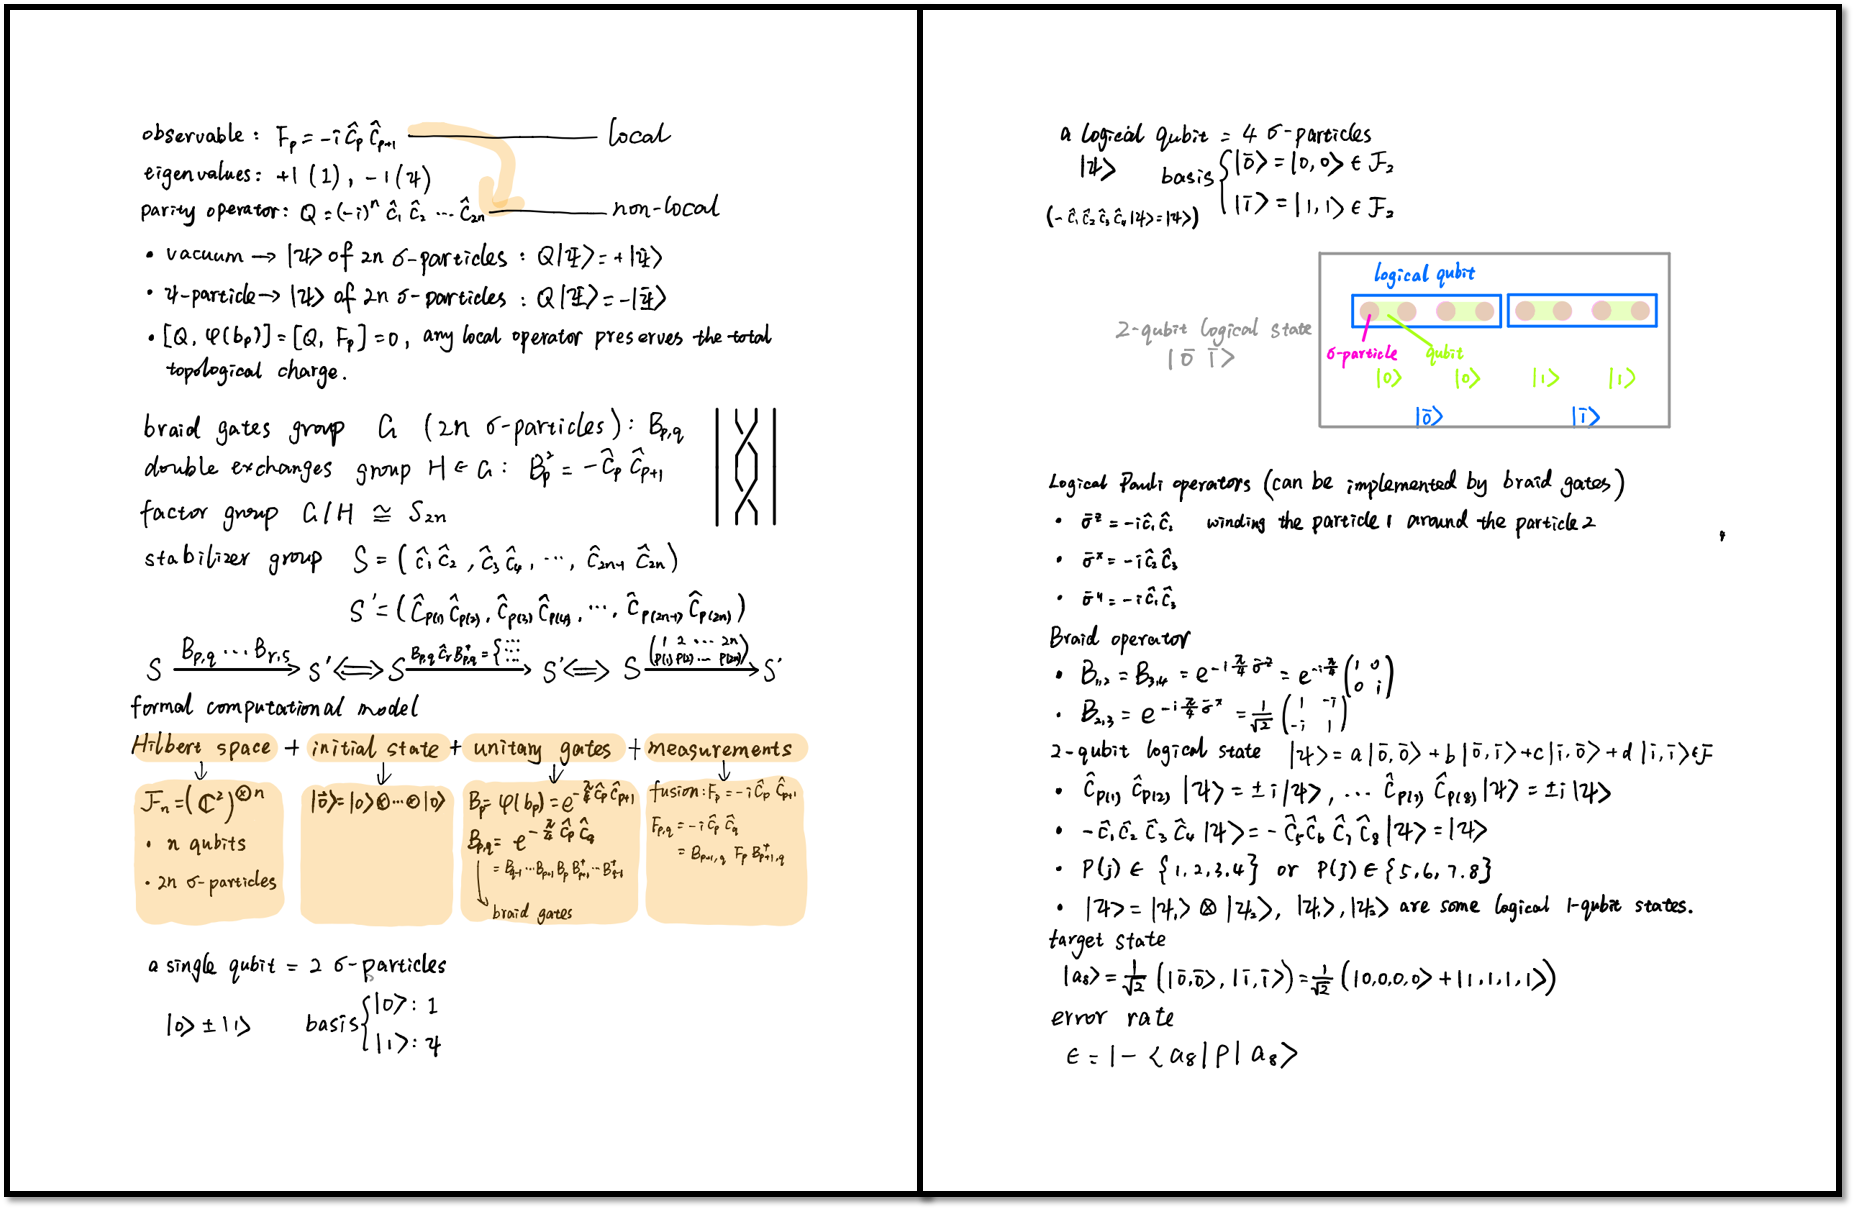 observable : Fₚ = -i ĉₚ ĉₚ₊₁ —— local
eigenvalues: +1 (1), -1 (ψ)
parity operator: Q = (-i)ⁿ ĉ₁ ĉ₂ ⋯ ĉ₂ₙ —— non-local
• vacuum → |ψ⟩ of 2n σ-particles : Q|Ψ⟩ = +|Ψ⟩
• ψ-particle → |ψ⟩ of 2n σ-particles : Q|Ψ⟩ = -|Ψ⟩
• [Q, φ(bₚ)] = [Q, Fₚ] = 0, any local operator preserves the total
topological charge.
braid gates group G (2n σ-particles) : B_{p,q}
double exchanges group H ∈ G : B̂ₚ² = -ĉₚ ĉₚ₊₁
factor group G/H ≅ S₂ₙ
stabilizer group S = (ĉ₁ĉ₂, ĉ₃ĉ₄, ⋯, ĉ₂ₙ₋₁ ĉ₂ₙ)
S' = (ĉ_{p(1)} ĉ_{p(2)}, ĉ_{p(3)} ĉ_{p(4)}, ⋯, ĉ_{p(2n-1)} ĉ_{p(2n)})
B_{p,q} ⋯ B_{r,s} B_{p,q} ĉᵣ B†_{p,q} = { ⋯ (1 2 ⋯ 2n
p(1) p(2) ⋯ p(2n))
S → S' ⟺ S → S' ⟺ S → S'
formal computational model
Hilbert space + initial state + unitary gates + measurements
𝓕ₙ = (ℂ²)^{⊗n}
• n qubits
• 2n σ-particles
|0̄⟩ = |0⟩ ⊗ ⋯ ⊗ |0⟩
Bₚ = φ(bₚ) = e^{-π/4 ĉₚ ĉₚ₊₁}
B_{p,q} = e^{-π/4 ĉₚ ĉ_q}
= B_{q-1} ⋯ B_{p+1} Bₚ B†_{p+1} ⋯ B†_{q-1}
braid gates
fusion : Fₚ = -i ĉₚ ĉₚ₊₁
F_{p,q} = -i ĉₚ ĉ_q
= B_{p+1,q} Fₚ B†_{p+1,q}
a single qubit = 2 σ-particles
|0⟩ ± |1⟩ basis { |0⟩ : 1
|1⟩ : ψ
a logical qubit = 4 σ-particles
|ψ⟩ basis { |0̄⟩ = |0,0⟩ ∈ 𝓕₂
|1̄⟩ = |1,1⟩ ∈ 𝓕₂
(-ĉ₁ĉ₂ĉ₃ĉ₄|ψ⟩ = |ψ⟩)
logical qubit
2-qubit logical state
|0̄ 1̄⟩
σ-particle qubit
|0⟩ |0⟩ |1⟩ |1⟩
|0̄⟩ |1̄⟩
Logical Pauli operators (can be implemented by braid gates)
• σ̄ᶻ = -iĉ₁ĉ₂ winding the particle 1 around the particle 2
• σ̄ˣ = -iĉ₂ĉ₃
• σ̄ʸ = -iĉ₁ĉ₃
Braid operator
• B₁,₂ = B₃,₄ = e^{-i π/4 σ̄ᶻ} = e^{-i π/4} (1 0
0 i)
• B₂,₃ = e^{-i π/4 σ̄ˣ} = 1/√2 (1 -i
-i 1)
2-qubit logical state |ψ⟩ = a|0̄,0̄⟩ + b|0̄,1̄⟩ + c|1̄,0̄⟩ + d|1̄,1̄⟩ ∈ 𝓕
• ĉ_{p(1)} ĉ_{p(2)} |ψ⟩ = ±i|ψ⟩, ⋯ ĉ_{p(7)} ĉ_{p(8)} |ψ⟩ = ±i|ψ⟩
• -ĉ₁ĉ₂ĉ₃ĉ₄|ψ⟩ = -ĉ₅ĉ₆ĉ₇ĉ₈|ψ⟩ = |ψ⟩
• p(j) ∈ {1,2,3,4} or p(j) ∈ {5,6,7.8}
• |ψ⟩ = |ψ₁⟩ ⊗ |ψ₂⟩, |ψ₁⟩, |ψ₂⟩ are some logical 1-qubit states.
target state
|a₈⟩ = 1/√2 (|0̄,0̄⟩, |1̄,1̄⟩) = 1/√2 (|0,0,0,0⟩ + |1,1,1,1⟩)
error rate
ϵ = 1 - ⟨a₈|ρ|a₈⟩